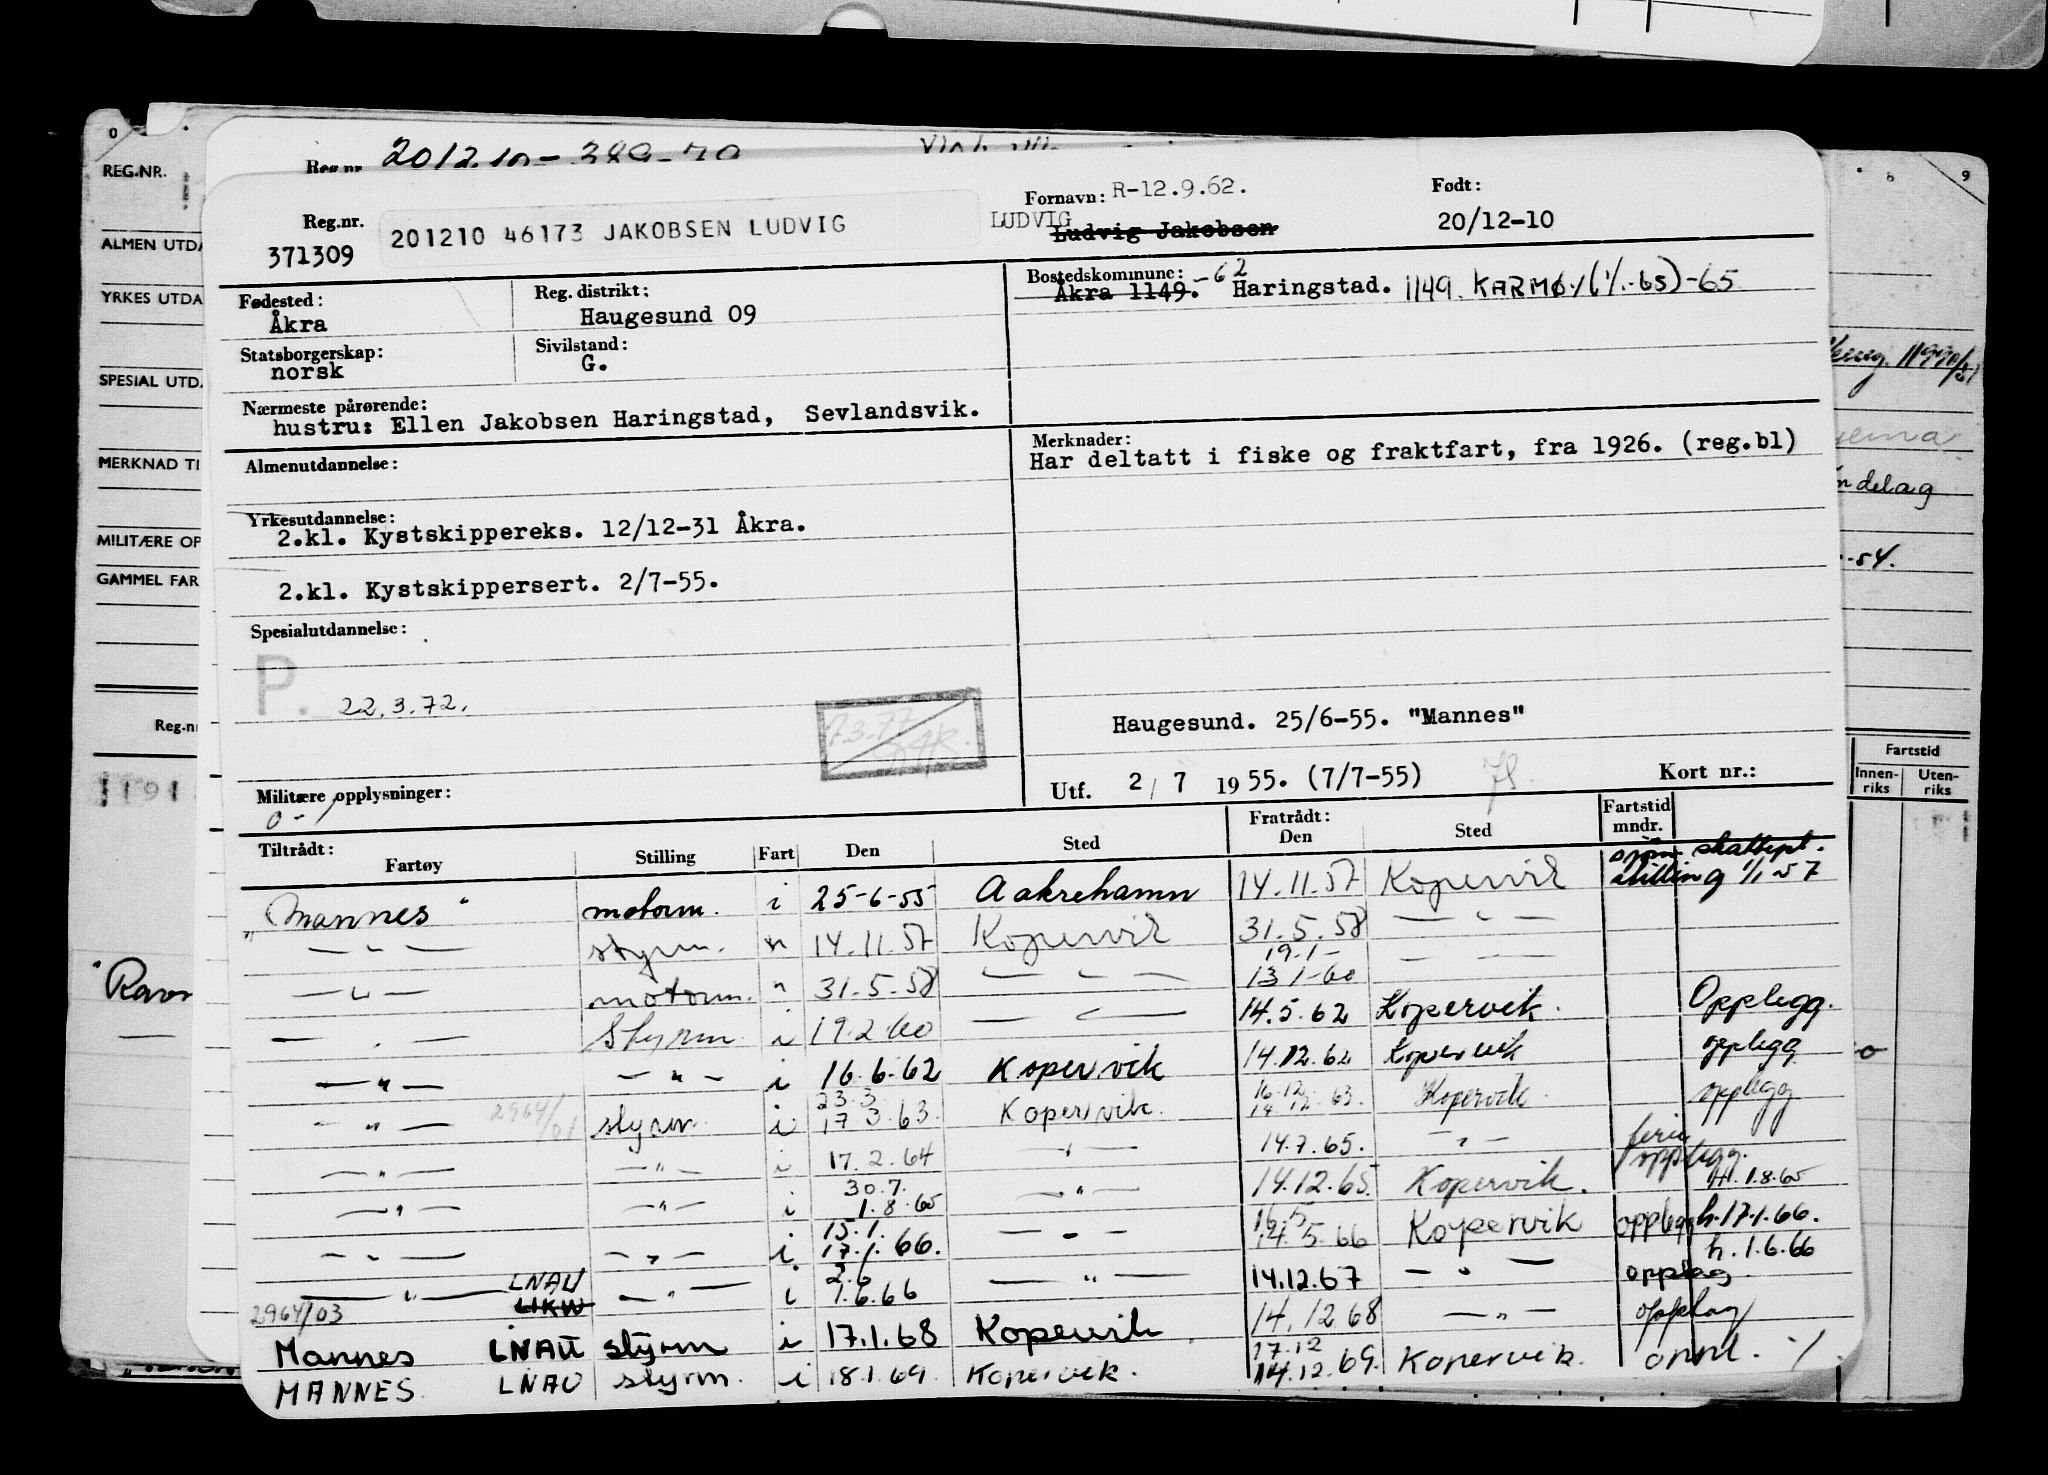 REG.NR.
ALMEN UTDA
YRKES UTDA
SPESIAL UTDA
MERKNAD TI
MILITÆRE OP
GAMMEL FAR
Reg.nr
Reg.nr. 371309
201210 46173 JAKOBSEN LUDVIG
Fornavn: R-12.9.62.
LUDVIG ~~Ludvig Jakobsen~~
Født: 20/12-10
Fødested: Åkra
Reg. distrikt: Haugesund 09
Bostedskommune: ~~Åkra 1149.~~ -62 Haringstad. 1149. KARMØY (1/1-65)-65
Statsborgerskap: norsk
Sivilstand: G.
Nærmeste pårørende:
hustru: Ellen Jakobsen Haringstad, Sevlandsvik.
Almenutdannelse:
Merknader:
Har deltatt i fiske og fraktfart, fra 1926. (reg.bl)
Yrkesutdannelse:
2.kl. Kystskippereks. 12/12-31 Åkra.
2.kl. Kystskippersert. 2/7-55.
Spesialutdannelse:
P. 22.3.72.
Haugesund. 25/6-55. "Mannes"
Militære opplysninger:
Utf. 2/7 1955. (7/7-55)
Kort nr.:
Tiltrådt: Fartøy Stilling Fart Den Sted Fratrådt: Den Sted Fartstid mndr.
"Mannes" motorm. i 25-6-55 Aakrehamn 14.11.57 Kopervik stilling 1/1-57
— " — styrm. " 14.11.57 Kopervik 31.5.58 — " —
— " — motorm. " 31.5.58 — " — 19.1- 13.1-60 — —
— " — Styrm i 19.2.60 — " — 14.5.62 Kopervik. Opplegg.
— " — — " — i 16.6.62 Kopervik 14.12.62 Kopervik opplegg
— " — 2964/01 styrm. i 23.3 17.3.63. Kopervik. 16.12 14.12.63. Kopervik. opplegg
— " — — " — i 17.2.64 — " — 14.7.65. — " — ferie
— " — — " — i 30.7. 1.8.65 — " — 14.12.65. Kopervik. opplegg. h. 1.8.65
— " — — " — i 15.1. 17.1.66. — " — 16.5 14.5.66 Kopervik opplegg h. 17.1.66.
— " — LNAU ~~LIKW~~ — " — i 2.6 1.6.66 — " — 14.12.67 — " — opplag h. 1.6.66
2964/03
Mannes LNAU styrm i 17.1.68 Kopervik 14.12.68 — " — opplag
MANNES. LNAU styrm. i 18.1.69. Kopervik. 17.12 14.12.69. Kopervik.
Fartstid
Innen-riks Uten-riks